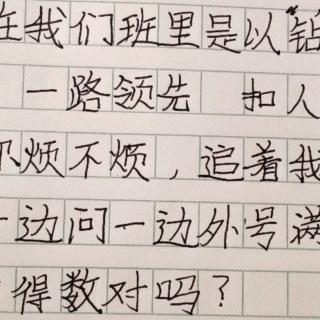 在我们班里是以“钻
一路领先 扣人
不烦不烦，追着我
一边问一边外号满
得数对吗？